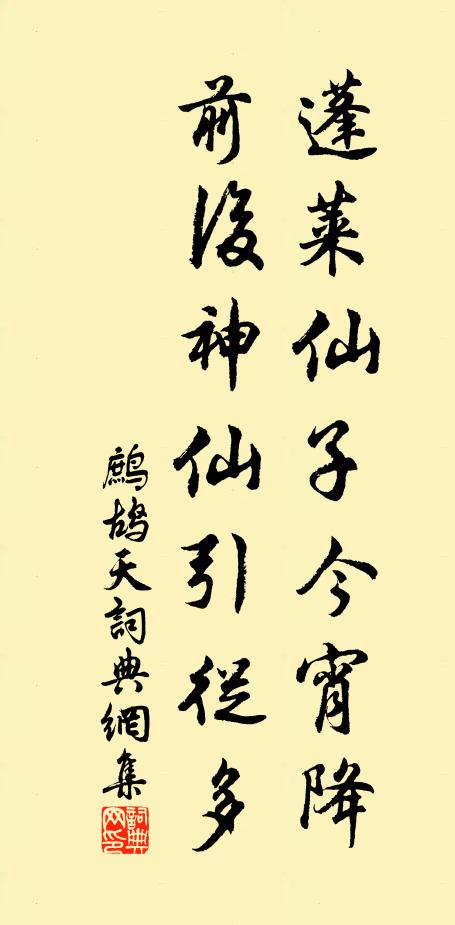 蓬萊仙子今宵降
前後神仙引從多
鷓鴣天詞典網集
詞典
网印